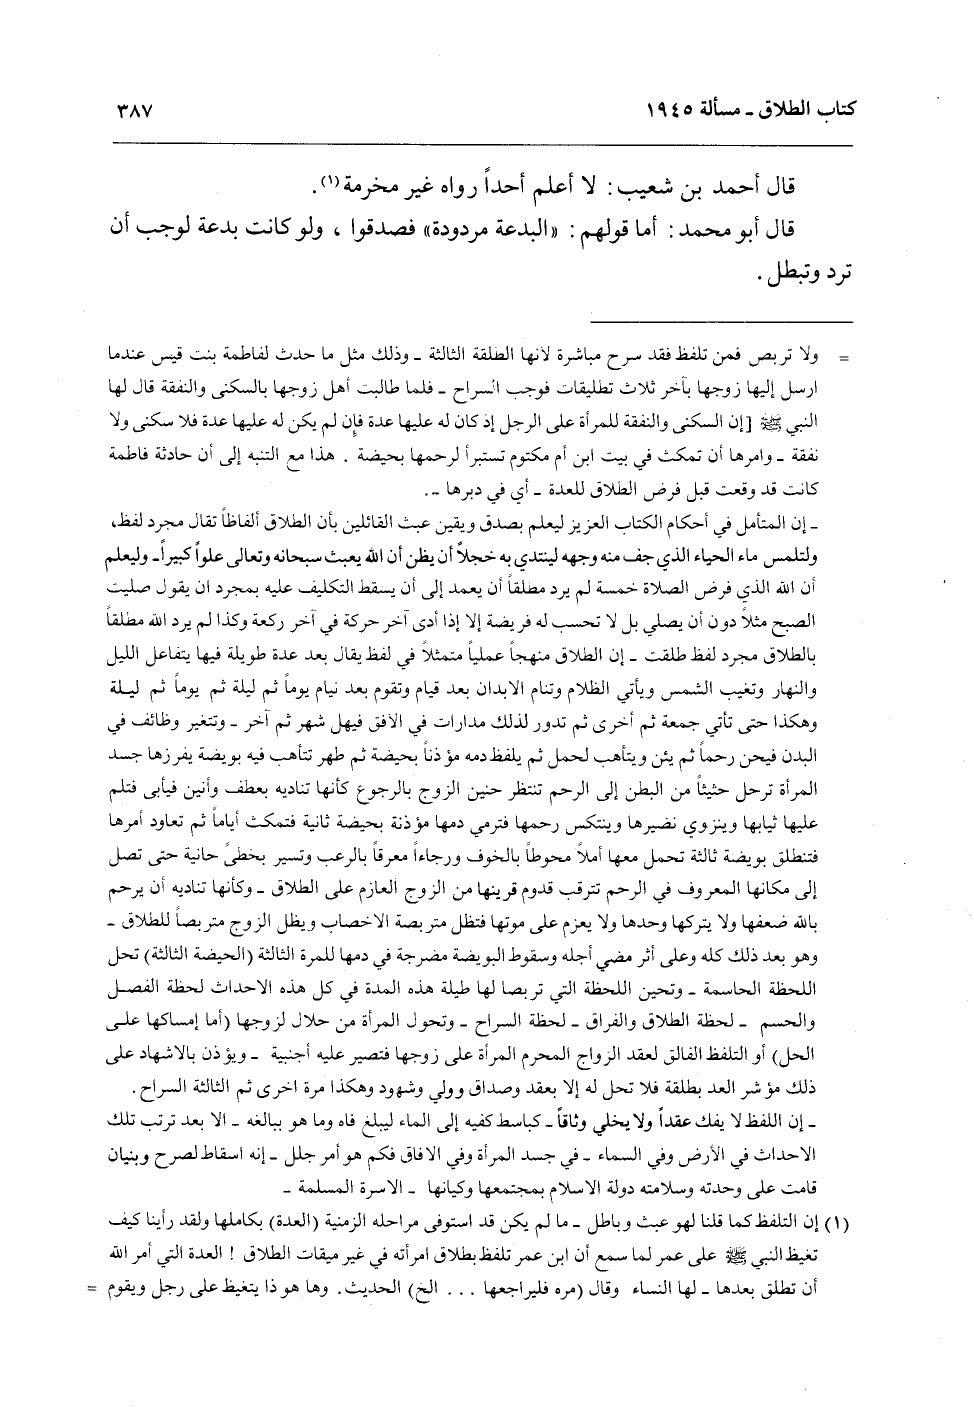 كتاب الطلاق ـ مسألة ١٩٤٥
٣٨٧
قال أحمد بن شعيب: لا أعلم أحداً رواه غير مخرمة(١).
قال أبو محمد: أما قولهم: «البدعة مردودة» فصدقوا ، ولو كانت بدعة لوجب أن
ترد وتبطل.
= ولا تربص فمن تلفظ فقد سرح مباشرة لأنها الطلقة الثالثة ـ وذلك مثل ما حدث لفاطمة بنت قيس عندما
ارسل إليها زوجها بآخر ثلاث تطليقات فوجب السراح ـ فلما طالبت أهل زوجها بالسكنى والنفقة قال لها
النبي ﷺ [إن السكنى والنفقة للمرأة على الرجل إذ كان له عليها عدة فإن لم يكن له عليها عدة فلا سكنى ولا
نفقة ـ وامرها أن تمكث في بيت ابن أم مكتوم تستبرأ لرحمها بحيضة . هذا مع التنبه إلى أن حادثة فاطمة
كانت قد وقعت قبل فرض الطلاق للعدة ـ أي في دبرها ـ.
ـ إن المتأمل في أحكام الكتاب العزيز ليعلم بصدق ويقين عبث القائلين بأن الطلاق ألفاظاً تقال مجرد لفظ،
ولتلمس ماء الحياء الذي جف منه وجهه لينتدي به خجلاً أن يظن أن الله يعبث سبحانه وتعالى علواً كبيراً ـ وليعلم
أن الله الذي فرض الصلاة خمسة لم يرد مطلقاً أن يعمد إلى أن يسقط التكليف عليه بمجرد ان يقول صليت
الصبح مثلاً دون أن يصلي بل لا تحسب له فريضة إلا إذا أدى آخر حركة في آخر ركعة وكذا لم يرد الله مطلقاً
بالطلاق مجرد لفظ طلقت ـ إن الطلاق منهجاً عملياً متمثلاً في لفظ يقال بعد عدة طويلة فيها يتفاعل الليل
والنهار وتغيب الشمس ويأتي الظلام وتنام الابدان بعد قيام وتقوم بعد نيام يوماً ثم ليلة ثم يوماً ثم ليلة
وهكذا حتى تأتي جمعة ثم أخرى ثم تدور لذلك مدارات في الافق فيهل شهر ثم آخر ـ وتتغير وظائف في
البدن فيحن رحماً ثم يئن ويتأهب لحمل ثم يلفظ دمه مؤذناً بحيضة ثم طهر تتأهب فيه بويضة يفرزها جسد
المرأة ترحل حثيثاً من البطن إلى الرحم تنتظر حنين الزوج بالرجوع كأنها تناديه بعطف وأنين فيأبى فتلم
عليها ثيابها وينزوي نضيرها وينتكس رحمها فترمي دمها مؤذنة بحيضة ثانية فتمكث أياماً ثم تعاود أمرها
فتنطلق بويضة ثالثة تحمل معها أملاً محوطاً بالخوف ورجاءاً معرقاً بالرعب وتسير بخطىً حانية حتى تصل
إلى مكانها المعروف في الرحم تترقب قدوم قرينها من الزوج العازم على الطلاق ـ وكأنها تناديه أن يرحم
بالله ضعفها ولا يتركها وحدها ولا يعزم على موتها فتظل متربصة الاخصاب ويظل الزوج متربصاً للطلاق ـ
وهو بعد ذلك كله وعلى أثر مضي أجله وسقوط البويضة مضرجة في دمها للمرة الثالثة (الحيضة الثالثة) تحل
اللحظة الحاسمة ـ وتحين اللحظة التي تربصا لها طيلة هذه المدة في كل هذه الاحداث لحظة الفصل
والحسم ـ لحظة الطلاق والفراق ـ لحظة السراح ـ وتحول المرأة من حلال لزوجها (أما إمساكها على
الحل) أو التلفظ الفالق لعقد الزواج المحرم المرأة على زوجها فتصير عليه أجنبية ـ ويؤذن بالاشهاد على
ذلك مؤشر العد بطلقة فلا تحل له إلا بعقد وصداق وولي وشهود وهكذا مرة اخرى ثم الثالثة السراح.
ـ إن اللفظ لا يفك عقداً ولا يخلي وثاقاً ـ كباسط كفيه إلى الماء ليبلغ فاه وما هو ببالغه ـ الا بعد ترتب تلك
الاحداث في الأرض وفي السماء ـ في جسد المرأة وفي الافاق فكم هو أمر جلل ـ إنه اسقاط لصرح وبنيان
قامت على وحدته وسلامته دولة الاسلام بمجتمعها وكيانها ـ الاسرة المسلمة ـ
(١) إن التلفظ كما قلنا لهو عبث وباطل ـ ما لم يكن قد استوفى مراحله الزمنية (العدة) بكاملها ولقد رأينا كيف
تغيظ النبي ﷺ على عمر لما سمع أن ابن عمر تلفظ بطلاق امرأته في غير ميقات الطلاق ! العدة التي أمر الله
أن تطلق بعدها ـ لها النساء وقال (مره فليراجعها ... الخ) الحديث. وها هو ذا يتغيظ على رجل ويقوم =